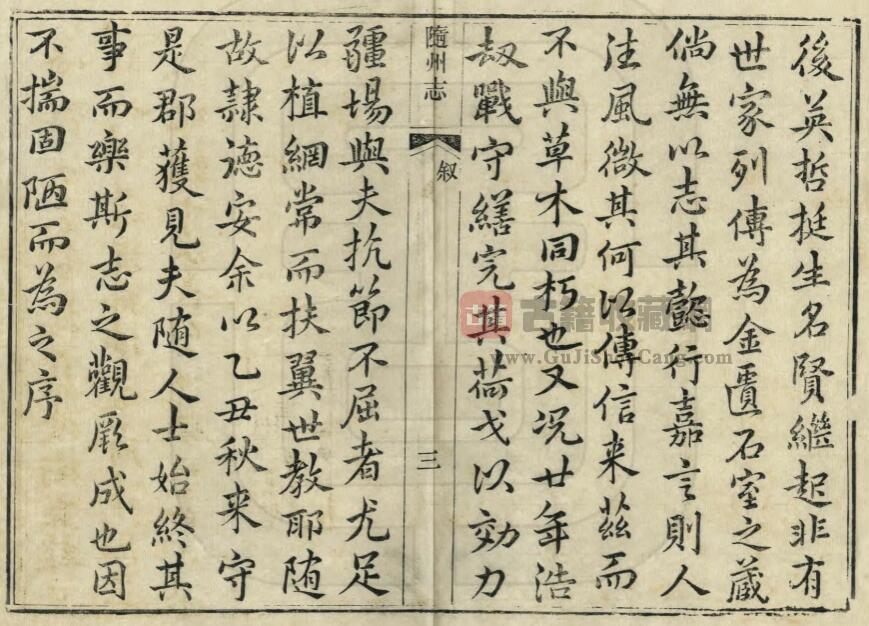 後英哲挺生名賢繼起非有
世家列傳為金匱石室之藏
倘無以志其懿行嘉言則人
往風微其何以傳信来茲而
不與草木同朽也又况廿年浩
劫戰守繕完其荷戈以効力
隨州志
叙
三
疆場與夫抗節不屈者尤足
以植綱常而扶翼世教耶随
故隷德安余以乙丑秋来守
是郡獲見夫随人士始終其
事而樂斯志之觀厥成也因
不揣固陋而為之序
古籍收藏網
www.GuJiShouCang.com